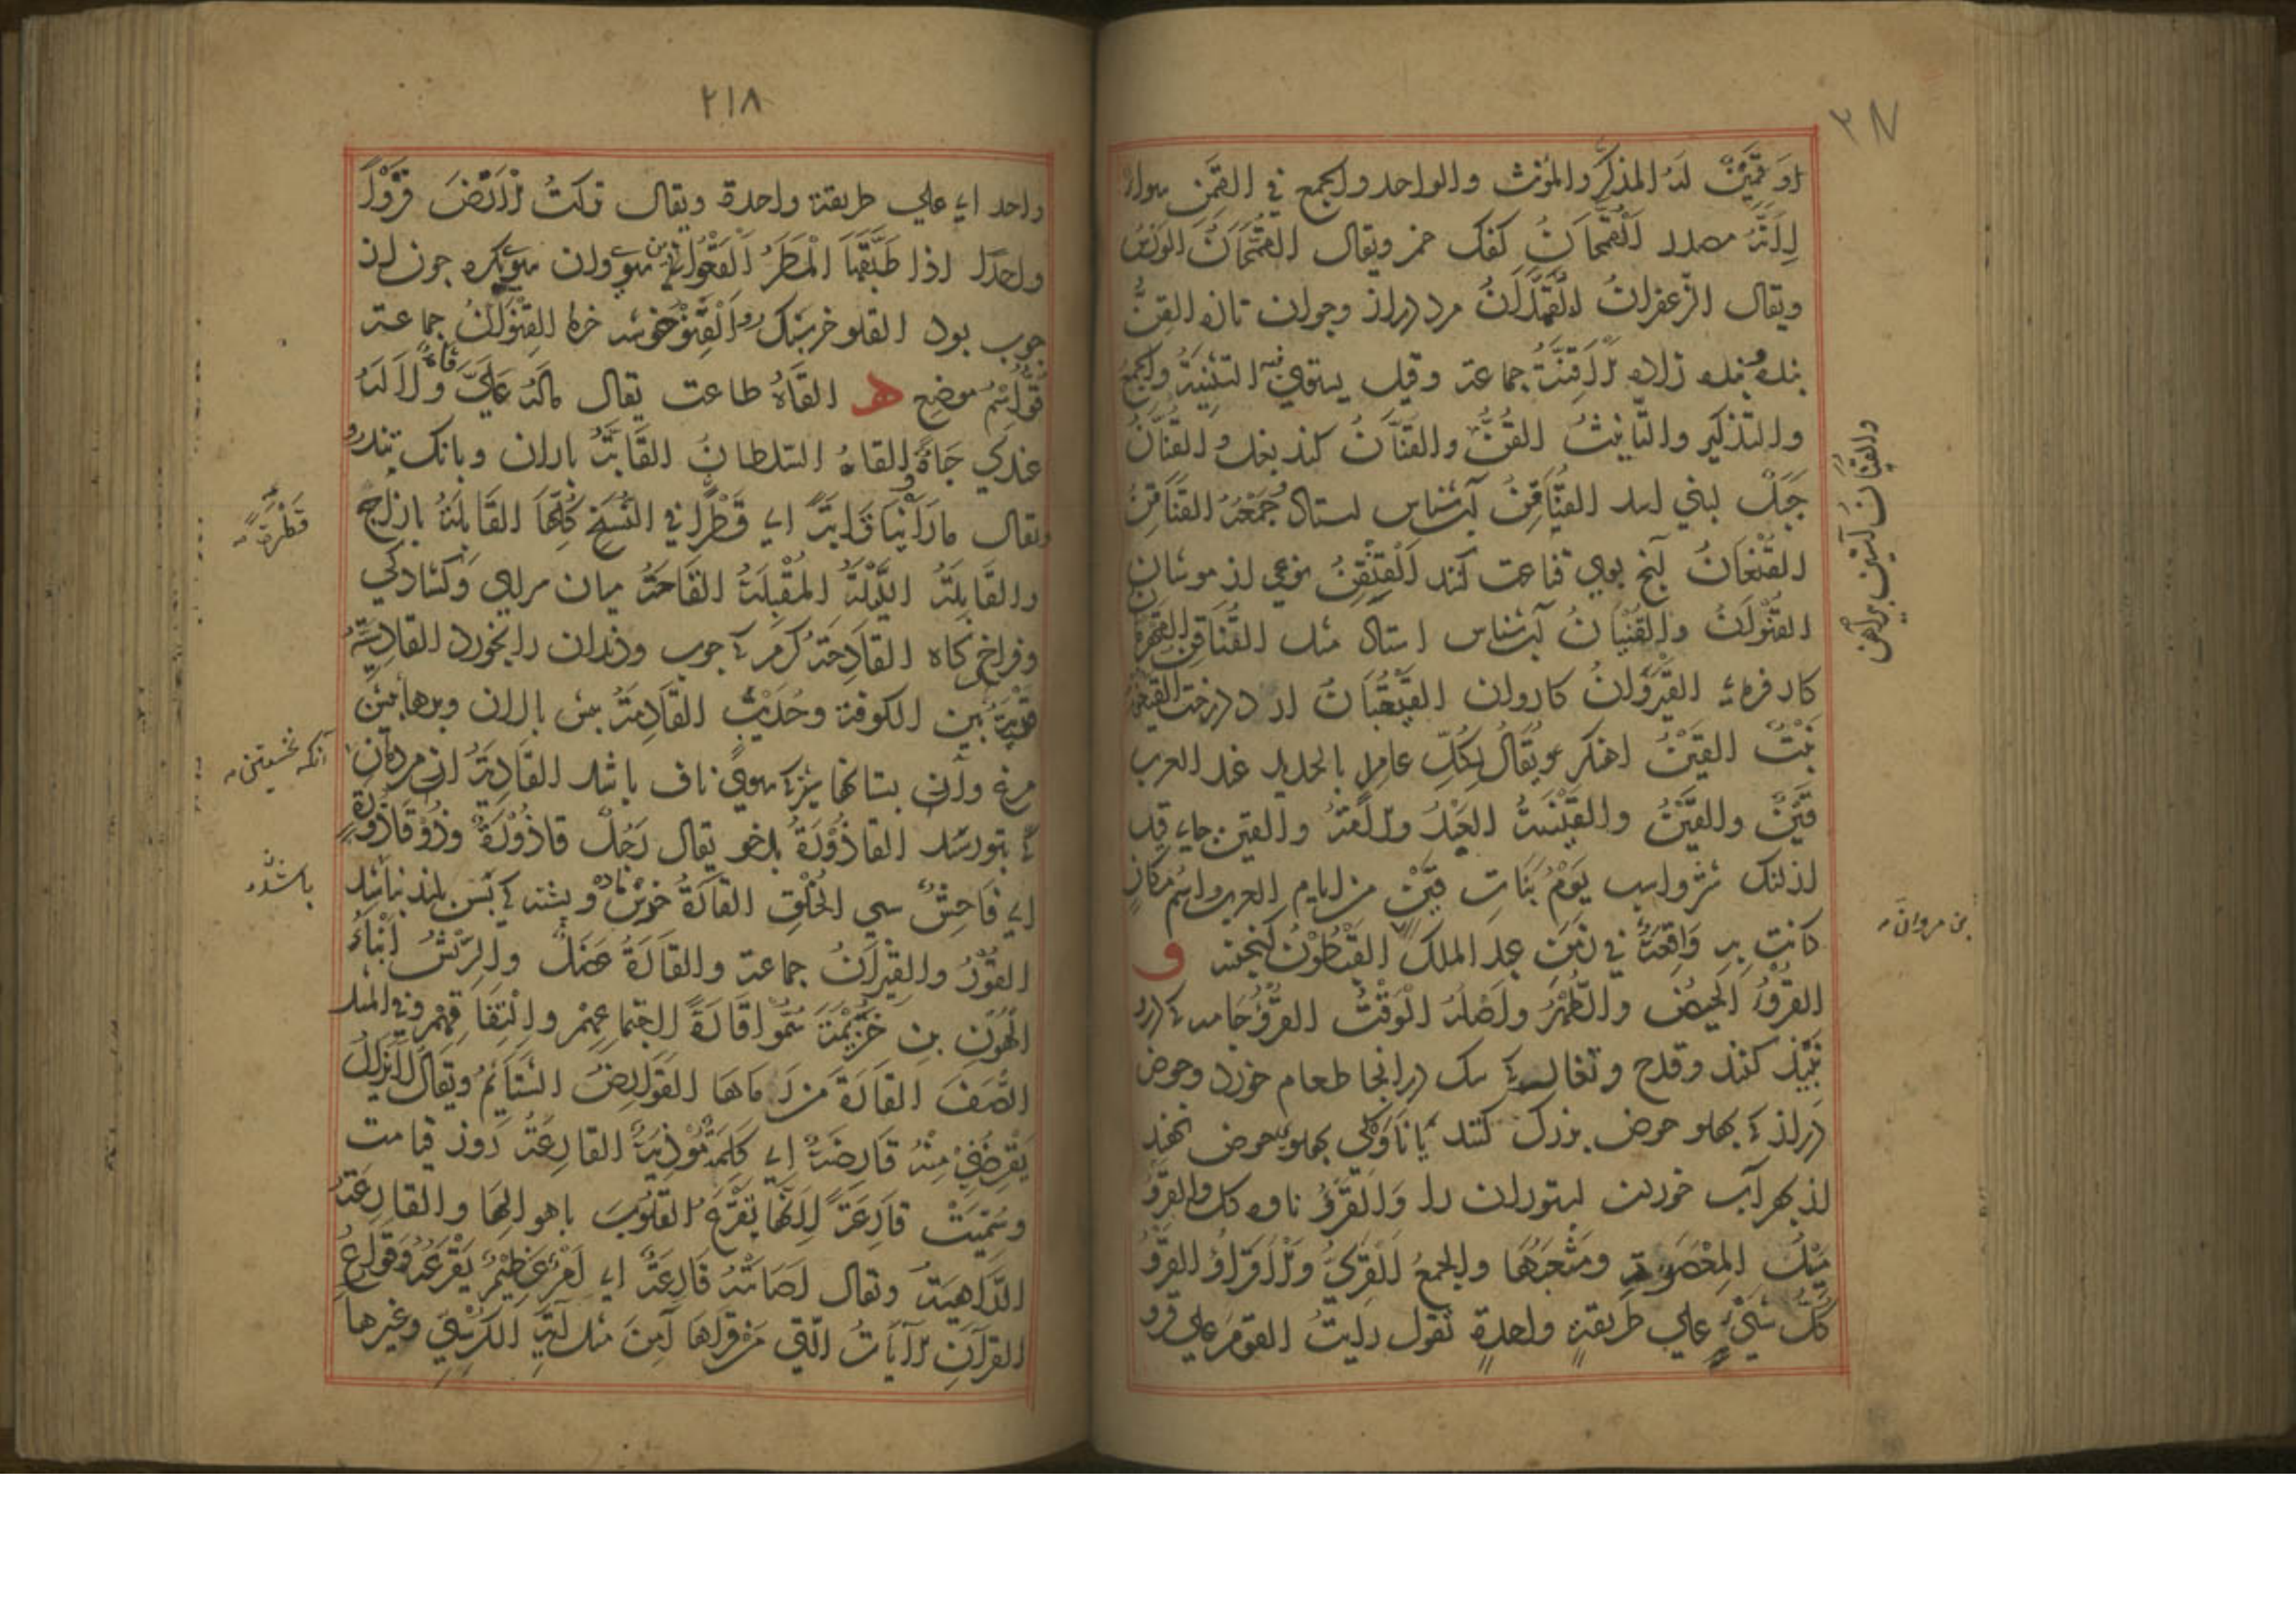 او قَمِيْنٌ له المذكر والمؤنث والواحد والجمع في القمن سواء
لانّه مصدر القُمَّحانُ كفك خمر ويقال القُمَّحَانُ الورس
ويقال الزعفران القُمُدَّانُ مرد دراز وجوان تازه القِنُّ
بنده بنده زاده الاقِنَّةُ جماعة وقيل يستوي فيه التثنية والجمع
والتذكير والتانيث القُنُّ والقُنَانُ كند بغل والقُنَّانُ
جَبَلٌ لبني اسد القُنَاقِنُ آب شناس استاد جَمْعُهُ القَنَاقِنُ
القُنْعَانُ آنج بوي قناعت كنند القِنْقِنُ نوعي از موشان
القِنْوَانُ والقُنْيَانُ آب شناس استاد مثله القُنَاقِن
كار فرماء القَيْرَوَانُ كاروان القَيْقَبَانُ از درخت
نَبْتٌ القَيْنُ اهنكر ويُقَالُ لِكُلِّ عامِلٍ بالحديد عند العرب
قَيْنٌ والقَيْنُ والقَيْنَةُ العَبْدُ والامَةُ والقين جاء قيد
لذلك شتر واسب يَوْمُ بَنَاتِ قَيْنٍ من ايام العرب واسم مكانٍ
كانت به وَاقِعَةٌ في زَمَنِ عبد الملك القَيْطُوْنُ كنجينه و
القُرْوُ الحَيضُ والطُّهْرُ واَصْلُهُ الوَقْتُ القَرْوُ جامه كه درو
نَبِيْذ كنند وقدح وتغار كه سك درانجا طعام خورد وحوض
دراز كه بهلو حوض بزرك كنند يا ناوكي بهلوي حوض نهند
از بهر آب خوردن ستوران را وَالْقَرْوُ ناوه كل والقَرْوُ
مِيْلُ المِعْصَرةِ ومَثْعَبُهَا والجمع القُرِيُّ والاَقْرَاءُ القَرْوُ
كُلُّ شَيْءٍ علي طريقةٍ واحدةٍ تقول رايتُ القومَ علي قرو
والقُنَانُ آستين براهن
بن مروان
٢١٨
واحد اي علي طريقة واحدة ويقال تركتُ الاَرْضَ قَرْوًا
واحدًا اذا طَبَّقَهَا المَطَرُ
جوب بود القلو خر سبك رو القِنْوُ خوشه خرما القِنْوَانُ جماعة
قَوٌّ اِسْمُ موضِعٍ ه القَاهُ طاعت يقال مالَهُ عَلَيَّ قاهٌ ولا لَهُ
عندي جَاهٌ والقاهُ السلطانُ القَابَّةُ باران وبانك تندر
ويقال ما رَاَيْنَا قَابَّةً اي قَطْرًا في النُّسَخِ كُلِّهَا القَابِلَةُ بازاج
والقَابِلَةُ اللَّيْلَةُ المُقْبِلَةُ القَاحَةُ ميان سراي وكشادكي
وفراخ كاه القَادِحَةُ كرم كه جوب ودندان را بخورد القادِسِيَّةُ
قَرْيَةٌ بَيْنَ الكوفة وعُذَيْبٍ القَادِمَةُ بيش بالان وبرهاء بيش
مرغ وآن بستانها شتر كه سوي ناف باشد القَادِيَةُ از مردمان
كه بتو رسند القاذُوْرَةُ بدخو يقال رَجُلٌ قاذُوْرَةٌ وذُوْ قَاذُوْرَةٍ
اي فَاحِشٌ سيء الخُلُقِ القَارَةُ خرسن و بشته كه بس بلند نباشد
القُوْرُ والقِيْرَانُ جماعة والقَارَةُ عَضَلٌ والدِّيْشُ اَبْنَاءُ
الهُوْنِ بن خُزَيْمَةَ سُمُّوا قَارَةً لاجتماعِهِمْ والْتِفَافِهِمْ وفي المثل
انْصَفَ القارَةَ مَن رَامَاهَا القَوَارِضُ الشَّتَايِمُ ويقال لايزال
يَقْرِضُنِي مِنْهُ قَارِضَةٌ اي كَلِمَةٌ مُوذِيَةٌ القارِعَةُ روز قيامت
وسُمِّيَتْ قَارِعَةً لِاَنَّهَا تَقْرَعُ القُلُوبَ باهوالِهَا والقارِعَةُ
الدَّاهِيَةُ ويقال اَصَابَتْهُ قَارِعَةٌ اي اَمْرٌ عَظِيْمٌ يَقْرَعُهُ وقَوَارِعُ
القرآنِ الآيَاتُ الّتي مَنْ قَرَاَهَا اَمِنَ مثل آيَةِ الكُرْسِيِّ وغيرها
قَطْرَةً
آنكه نخستين
باشد